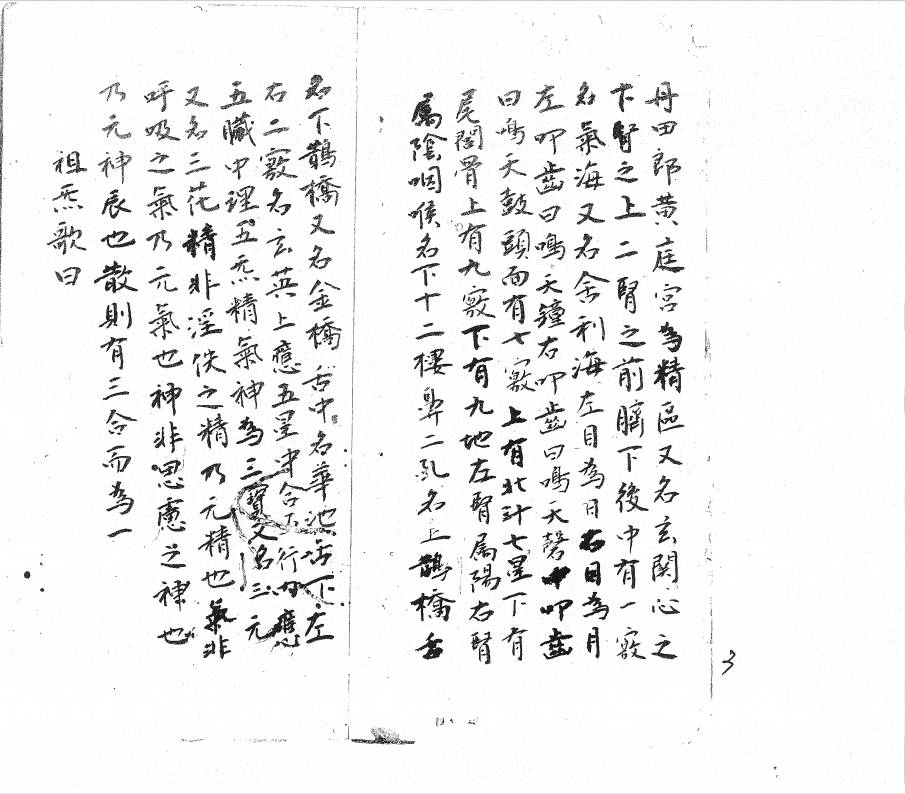 丹田郎黄庭宮為精區又名玄関心之
下腎之上二腎之前臍下後中有一竅
名氣海又名舍利海左目為日右目為月
左叩齒曰鳴天鐘右叩齒曰鳴天磬中叩齒
曰鳴天鼓頭面有七竅上有北斗七星下有
尾閭骨上有九竅下有九地左腎属陽右腎
属陰咽喉名下十二樓鼻二孔名上鵲橋舌
名下鵲橋又名金橋舌中名華池舌下左
右二竅名玄英上應五星中合五行内應
五臟中理五炁精氣神為三寳又名三元
又名三花精非淫佚之精乃元精也氣非
呼吸之氣乃元氣也神非思慮之神也
乃元神辰也散則有三合而為一
祖炁歌曰
3